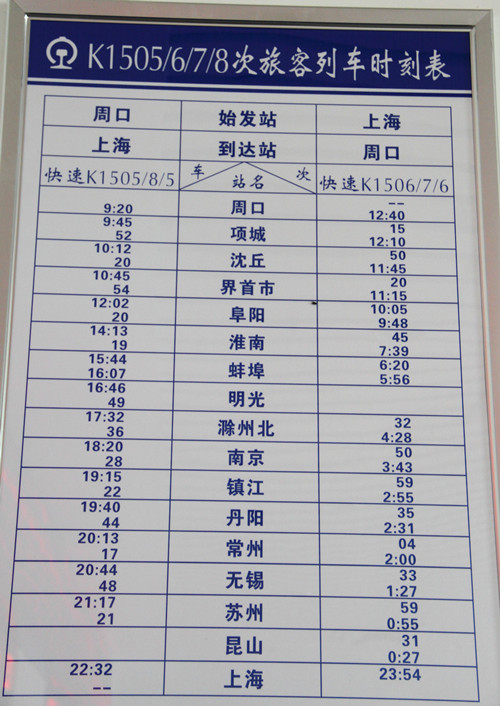 K1505/6/7/8次旅客列车时刻表
周口 始发站 上海
上海 到达站 周口
快速K1505/8/5 车 站名 次 快速K1506/7/6
9:20 周口 --
12:40
9:45 项城 15
52 12:10
10:12 沈丘 50
20 11:45
10:45 界首市 20
54 11:15
12:02 阜阳 10:05
20 9:48
14:13 淮南 45
19 7:39
15:44 蚌埠 6:20
16:07 5:56
16:46 明光
49
17:32 滁州北 32
36 4:28
18:20 南京 50
28 3:43
19:15 镇江 59
22 2:55
19:40 丹阳 35
44 2:31
20:13 常州 04
17 2:00
20:44 无锡 33
48 1:27
21:17 苏州 59
21 0:55
昆山 31
0:27
22:32 上海 23:54
--